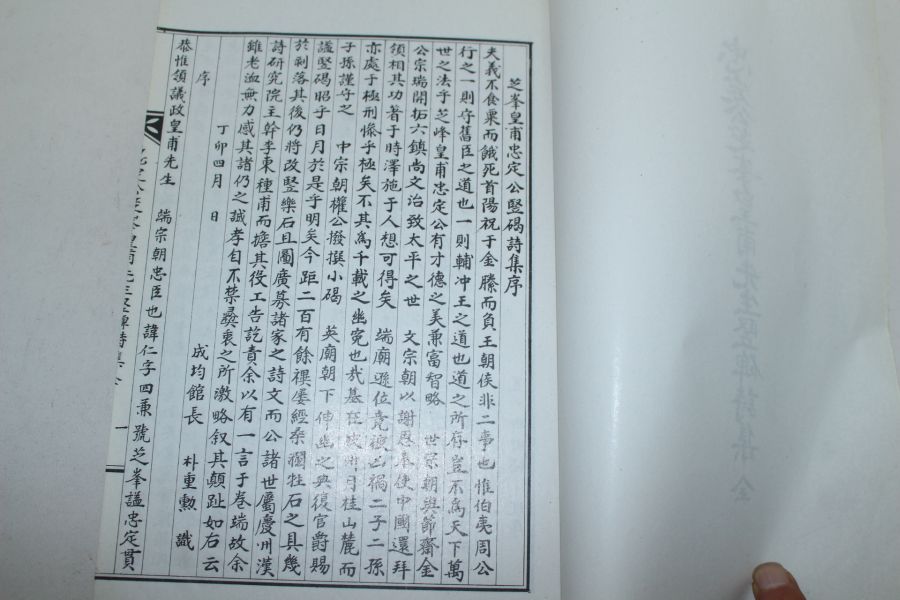 芝峯皇甫忠定公竪碣詩集序
夫義不食粟而餓死首陽祝于金縢而負王朝侯非二事也惟伯夷周公
行之一則守舊臣之道也一則輔冲王之道也道之所存豈不爲天下萬
世之法乎芝峰皇甫忠定公有才德之美兼富智略 世宗朝與節齋金
公宗瑞開拓六鎭尚文治致太平之世 文宗朝以謝恩奉使中國還拜
領相其功著于時澤施于人想可得矣 端廟遜位竟被凶禍二子二孫
亦處于極刑慘乎極矣不其爲千載之幽寃也哉墓在坡州月桂山麓而
子孫謹守之 中宗朝權公撥撰小碣 英廟朝下伸幽之典復官爵賜
謚竪碣昭乎日月於是乎明矣今距二百有餘禩屢經桑瀾牲石之具幾
於剝落其後仍將改竪樂石且圖廣募諸家之詩文而公諸世屬慶州漢
詩研究院主幹李東種甫而擔其役工告訖責余以有一言于卷端故余
雖老洫無力感其諸仍之誠孝自不禁彛衷之所激略叙其顚趾如右云
丁卯四月 日
成均館長 朴重勳 識
序
恭惟領議政皇甫先生 端宗朝忠臣也諱仁字四兼號芝峯謚忠定貫
一